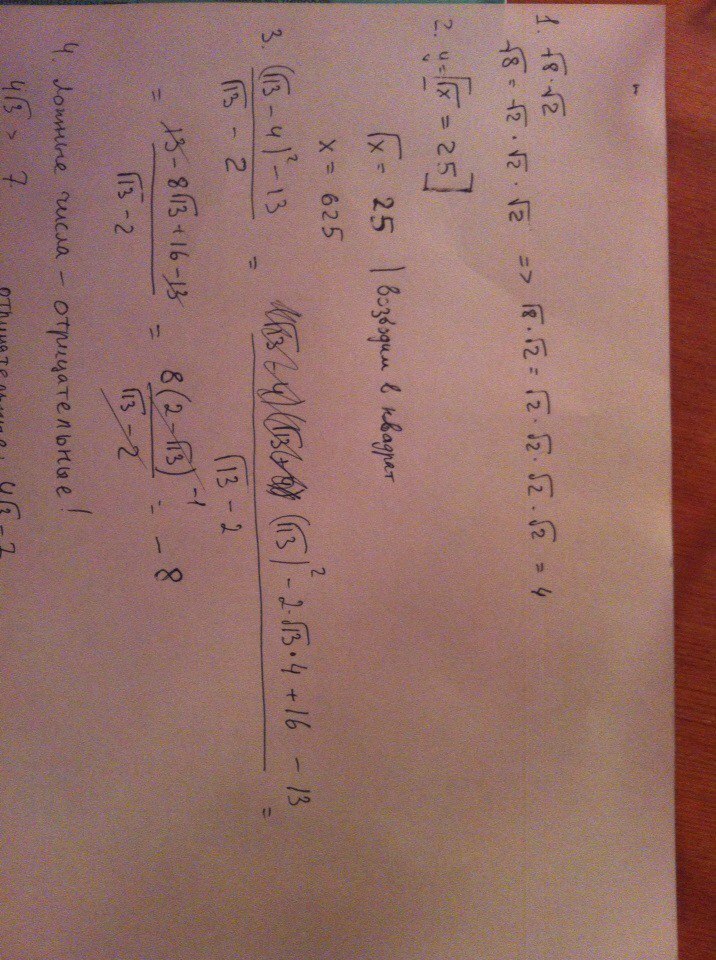 1. √8 · √2
√8 = √2 · √2 · √2 => √8 · √2 = √2 · √2 · √2 · √2 = 4
2. y = √x = 25]
√x = 25 | возводим в квадрат
x = 625
3. (√13 - 4)² - 13 / √13 - 2 = (√13)² - 2·√13·4 + 16 - 13 / √13 - 2 =
= 13 - 8√13 + 16 - 13 / √13 - 2 = 8(2 - √13) -1 / √13 - 2 = - 8
4. числа - отрицательные!
4√3 > 7 отрицательные: 4√3 - 7